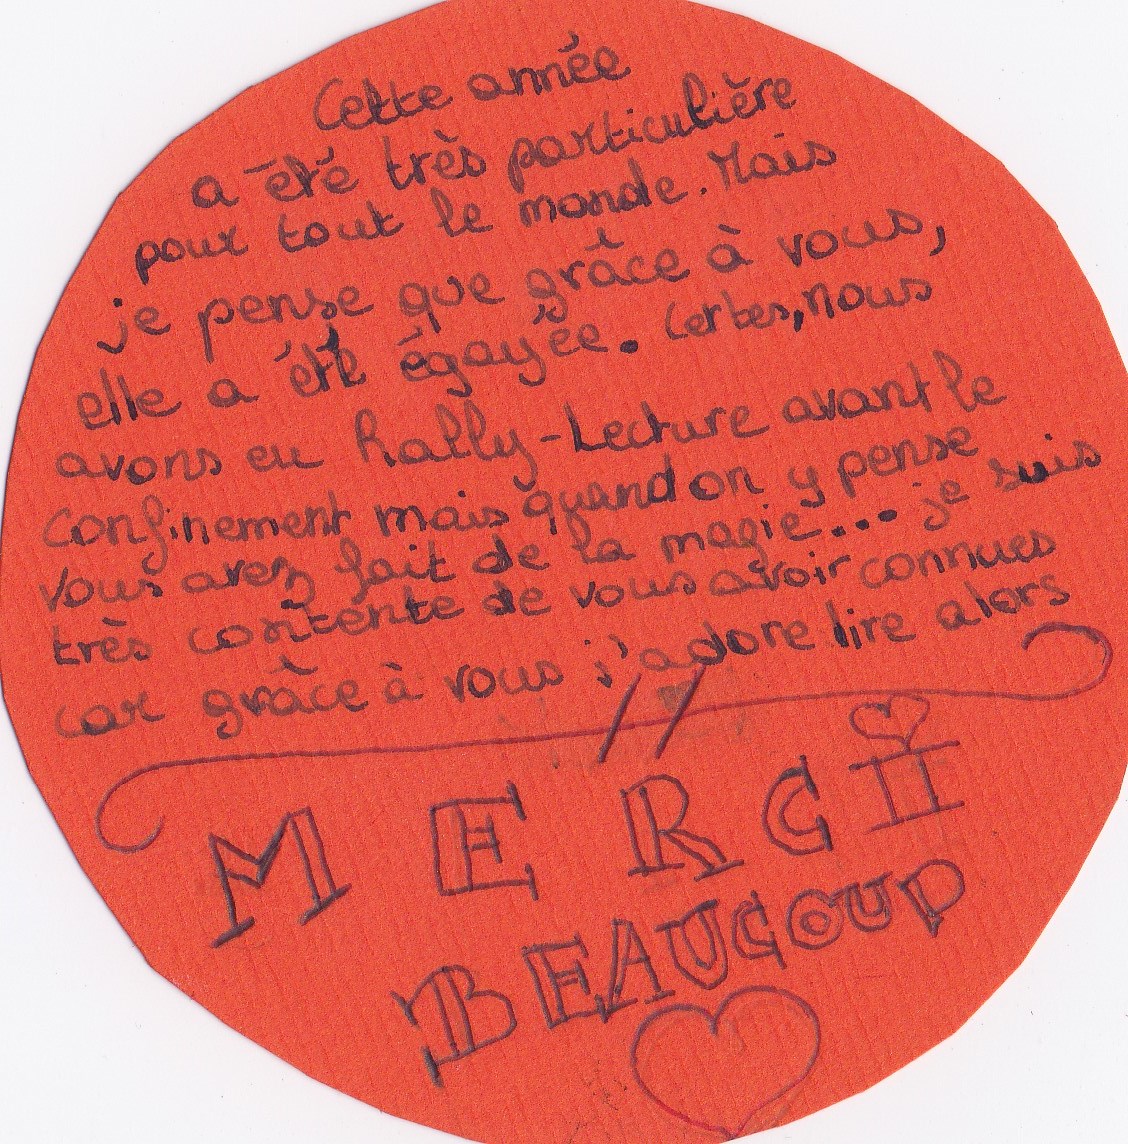 Cette année
a été très particulière
pour tout le monde. Mais
je pense que grâce à vous,
elle a été égayée. Certes, nous
avons eu Rally-Lecture avant le
confinement mais quand on y pense
vous avez fait de la magie... je suis
très contente de vous avoir connues
car grâce à vous j'adore lire alors
MERCI
BEAUCOUP